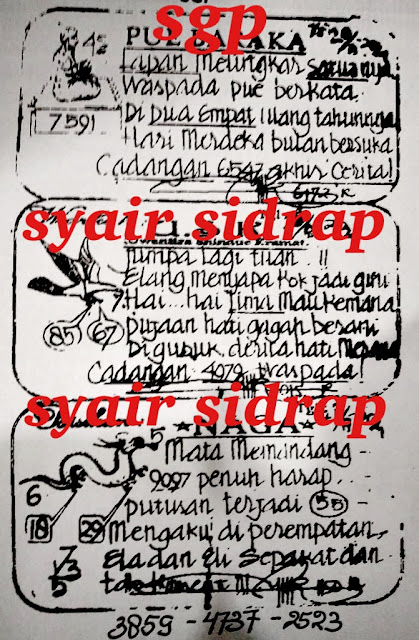 sgp
45
PUE BARAKA
7591
Lapan Melingkar satuanya
Waspada pue berkata
Di Dua Empat Ulang tahunnya
Hari Merdeka bulan bersuka
Cadangan 6547 akhir Cerita!
6173 K
syair sidrap
Jumpa lagi tuan !!
Elang Menyapa kok jadi guru
Hai... hai Lima Mau kemana
pujaan hati gagah berani
Di gubuk derita hati
85 67
Cadangan 4079 Waspada!
syair sidrap
NAGA
5
Mata Memandang -
9097 penuh harap -
putusan terjadi 55 -
6
18 29
Mengaku di perempatan
Ela dan Eli Sepakat dan
7/3
5
3859 - 4737 - 2523